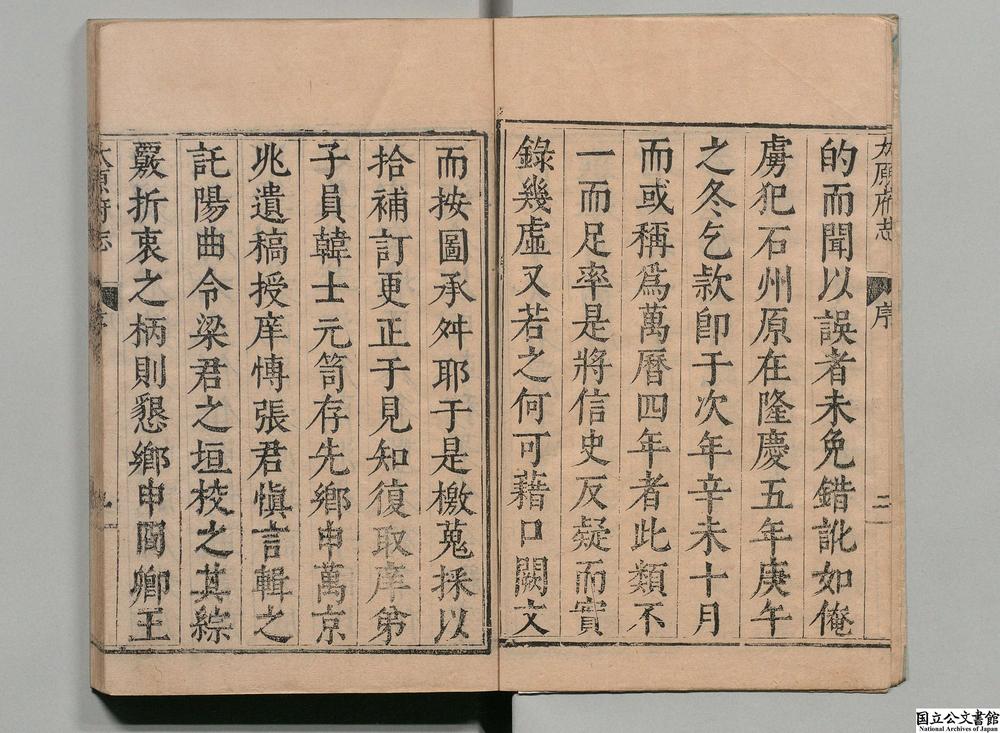 太原府志
序
二
的而聞以誤者未免錯訛如俺
虜犯石州原在隆慶五年庚午
之冬乞款卽于次年辛未十月
而或稱爲萬曆四年者此類不
一而足率是將信史反疑而實
錄幾虛又若之何可藉口闕文
而按圖承舛耶于是檄蒐採以
拾補訂更正于見知復取庠弟
子員韓士元笥存先鄉申萬京
兆遺稿授庠慱張君愼言輯之
託陽曲令梁君之垣校之其綜
覈折衷之柄則懇鄉申閻卿王
太原府志
序
国立公文書館
National Archives of Japan